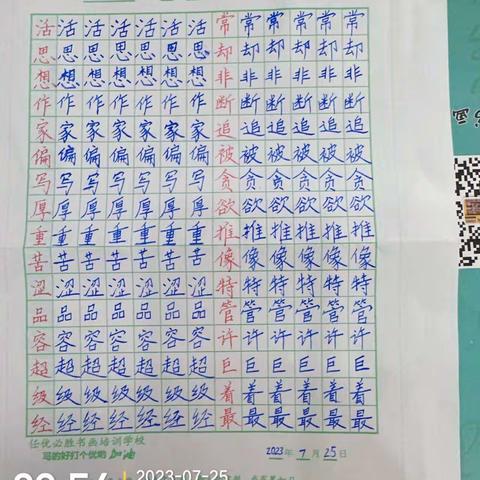 活活活活活活活常常常常常常
思思思思思思思却却却却却却
想想想想想想想非非非非非非
作作作作作作作断断断断断断
家家家家家家家追追追追追追
偏偏偏偏偏偏偏被被被被被被
写写写写写写写贪贪贪贪贪贪
厚厚厚厚厚厚厚欲欲欲欲欲欲
重重重重重重重推推推推推推
苦苦苦苦苦苦苦像像像像像像
涩涩涩涩涩涩涩特特特特特特
品品品品品品品管管管管管管
容容容容容容容许许许许许许
超超超超超超超巨巨巨巨巨巨
级级级级级级级着着着着着着
经经经经经经经最最最最最最
任优必胜书画培训学校
写的好打个优吧 加油
2023年7月25日
2023-07-25